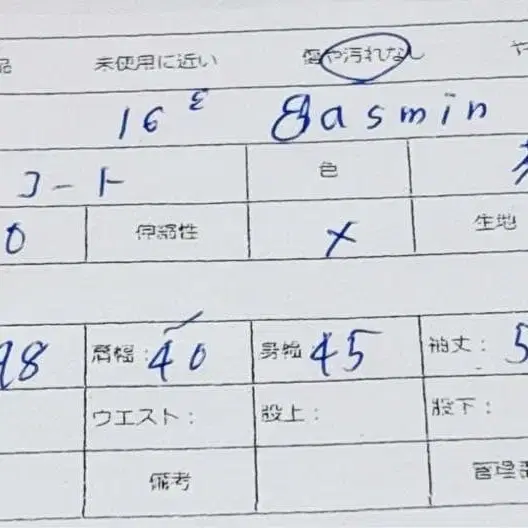 品 未使用に近い 傷や汚れなし や
16 ε Jasmin
コート 色
0 伸縮性 × 生地
98 肩幅: 40 身幅 45 袖丈: 5
ウエスト: 股上: 股下:
備考 管理番